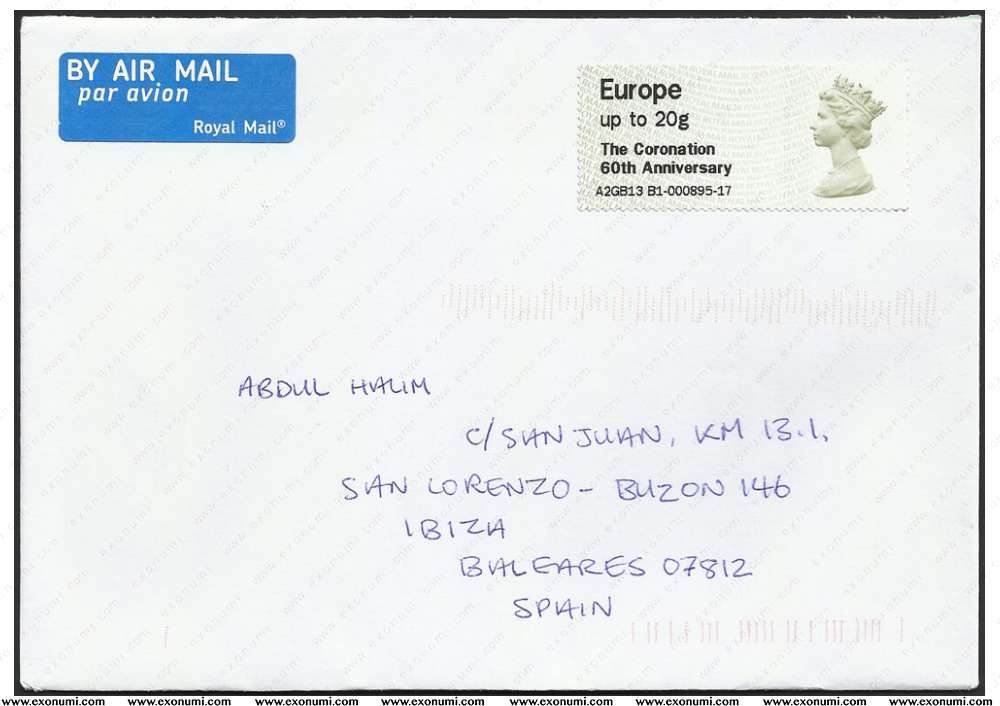 BY AIR MAIL
par avion
Royal Mail®
Europe
up to 20g
The Coronation
60th Anniversary
A2GB13 B1-000895-17
ABDUL HALIM
C/SAN JUAN, KM 13.1.
SAN LORENZO - BUZON 146
IBIZA
BALEARES 07812
SPAIN
www.exonumi.com www.exonumi.com www.exonumi.com www.exonumi.com www.exonumi.com www.exonumi.com www.exonumi.com www.exonumi.com